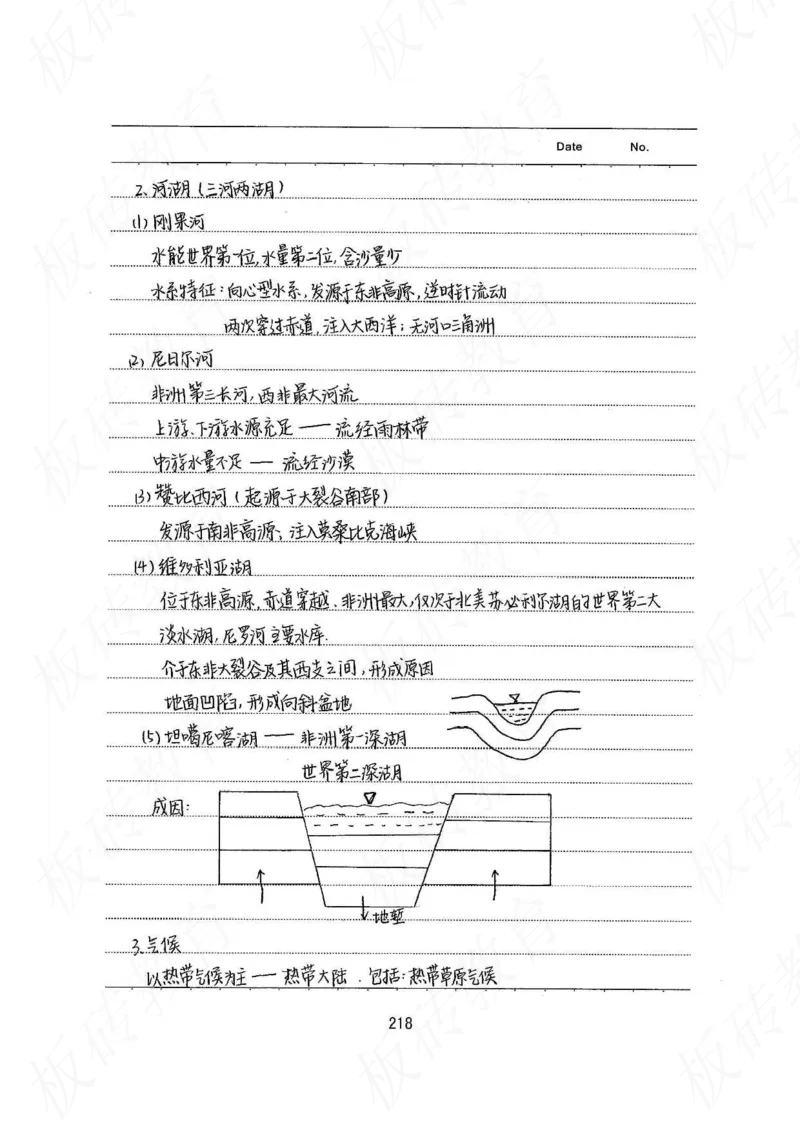 Date No.
2、河湖(三河两湖)
(1)刚果河
水能世界第一位,水量第二位,含沙量少
水系特征:向心型水系,发源于东非高原,逆时针流动
两次穿过赤道,注入大西洋;无河口三角洲
(2)尼日尔河
非洲第三长河,西非最大河流
上游、下游水源充足——流经雨林带
中游水量不足——流经沙漠
(3)赞比西河(起源于大裂谷南部)
发源于南非高原;注入莫桑比克海峡
(4)维多利亚湖
位于东非高原,赤道穿越,非洲最大,仅次于北美苏必利尔湖的世界第二大
淡水湖,尼罗河主要水库.
介于东非大裂谷及其西支之间,形成原因
地面凹陷,形成向斜盆地
(5)坦噶尼喀湖——非洲第一深湖
世界第二深湖
成因:
地堑
3.气候
以热带气候为主——热带大陆.包括:热带草原气候
218
板砖教育